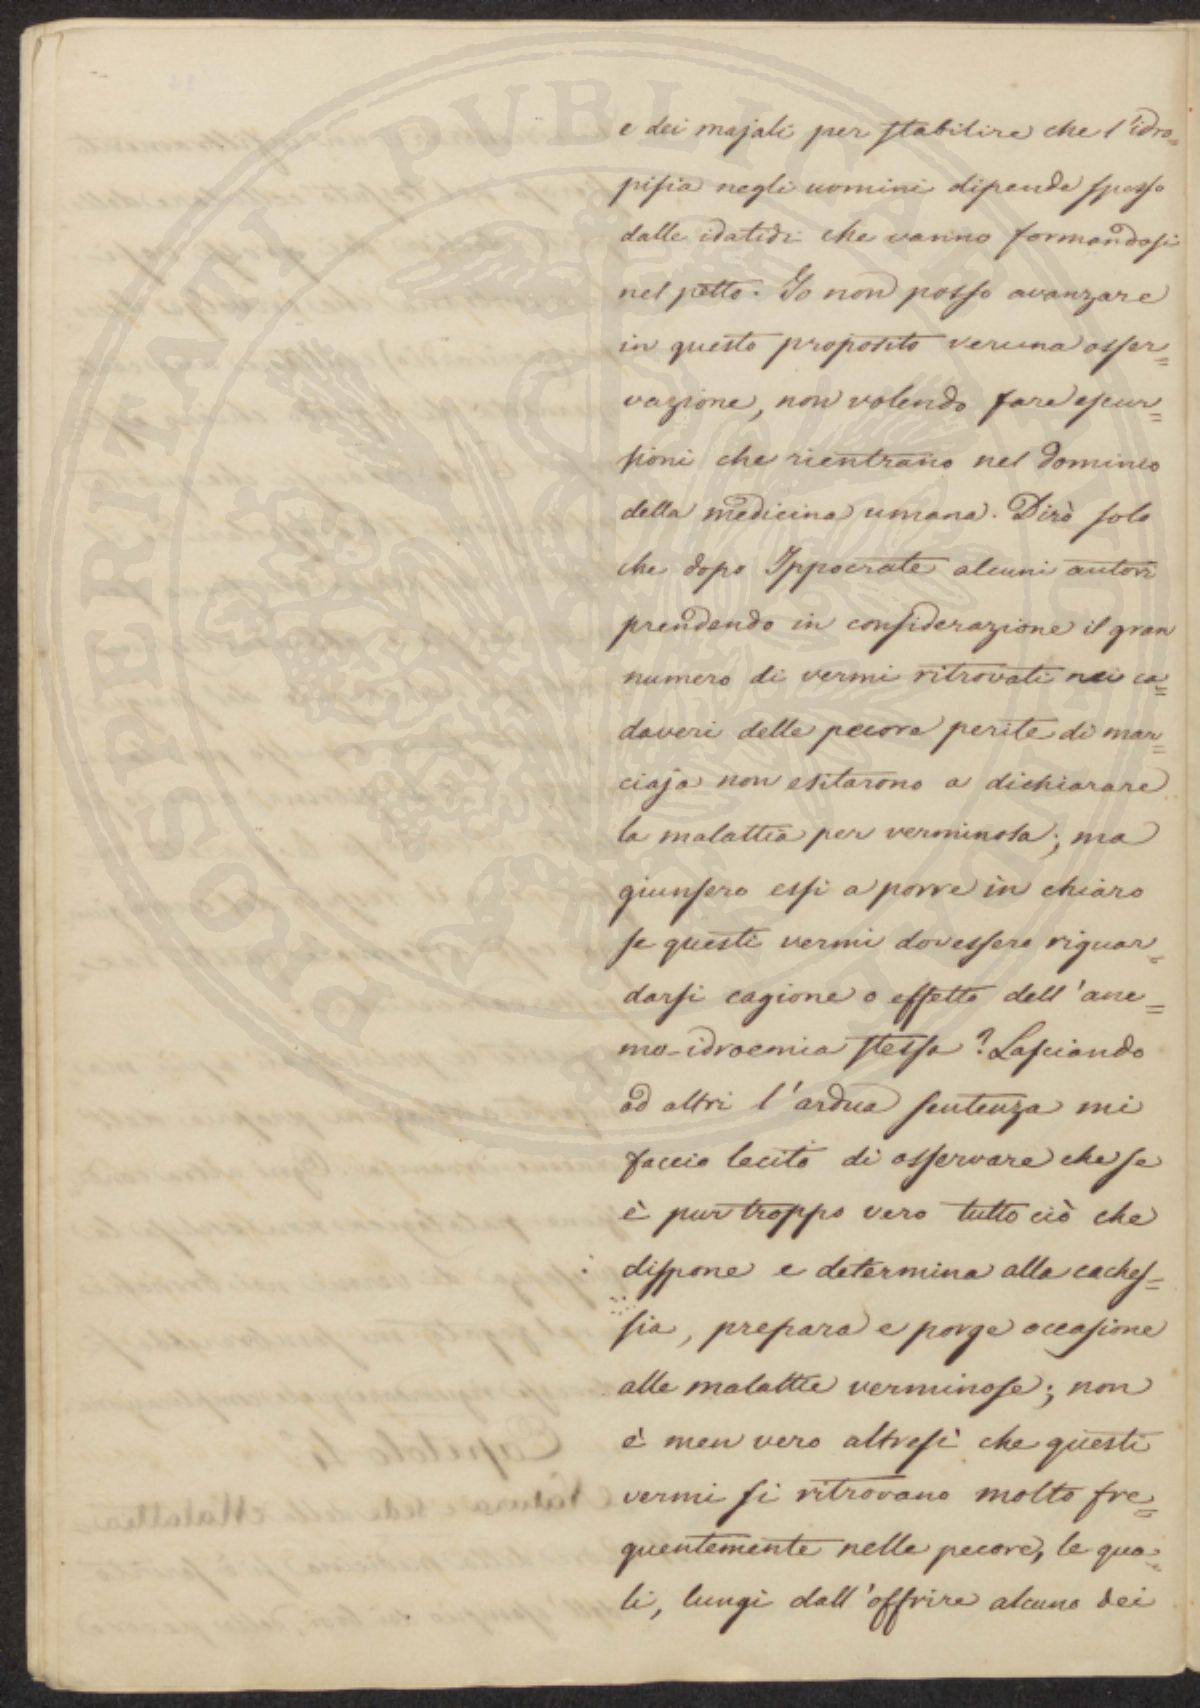 e dei majali per stabilire che l'idro-
pisia negli uomini dipende spesso
dalle idatidi che vanno formandosi
nel petto. Io non posso avanzare
in questo proposito veruna osser=
vazione, non volendo fare escur=
sioni che rientrano nel dominio
della medicina umana. Dirò solo
che dopo Ippocrate alcuni autori
prendendo in considerazione il gran
numero di vermi ritrovati nei ca=
daveri delle pecore perite di mar=
ciaja non esitarono a dichiarare
la malattia per verminosa; ma
giunsero essi a porre in chiaro
se questi vermi dovessero riguar=
darsi cagione o effetto dell'ane=
mo-idroemia stessa? Lasciando
ad altri l'ardua sentenza mi
faccio lecito di osservare che se
è pur troppo vero tutto ciò che
dispone e determina alla caches=
sia, prepara e porge occasione
alle malattie verminose; non
è men vero altresì che questi
vermi si ritrovano molto fre=
quentemente nelle pecore, le qua=
li, lungi dall'offrire alcuno dei
PROSPERITATI PUBLICAE